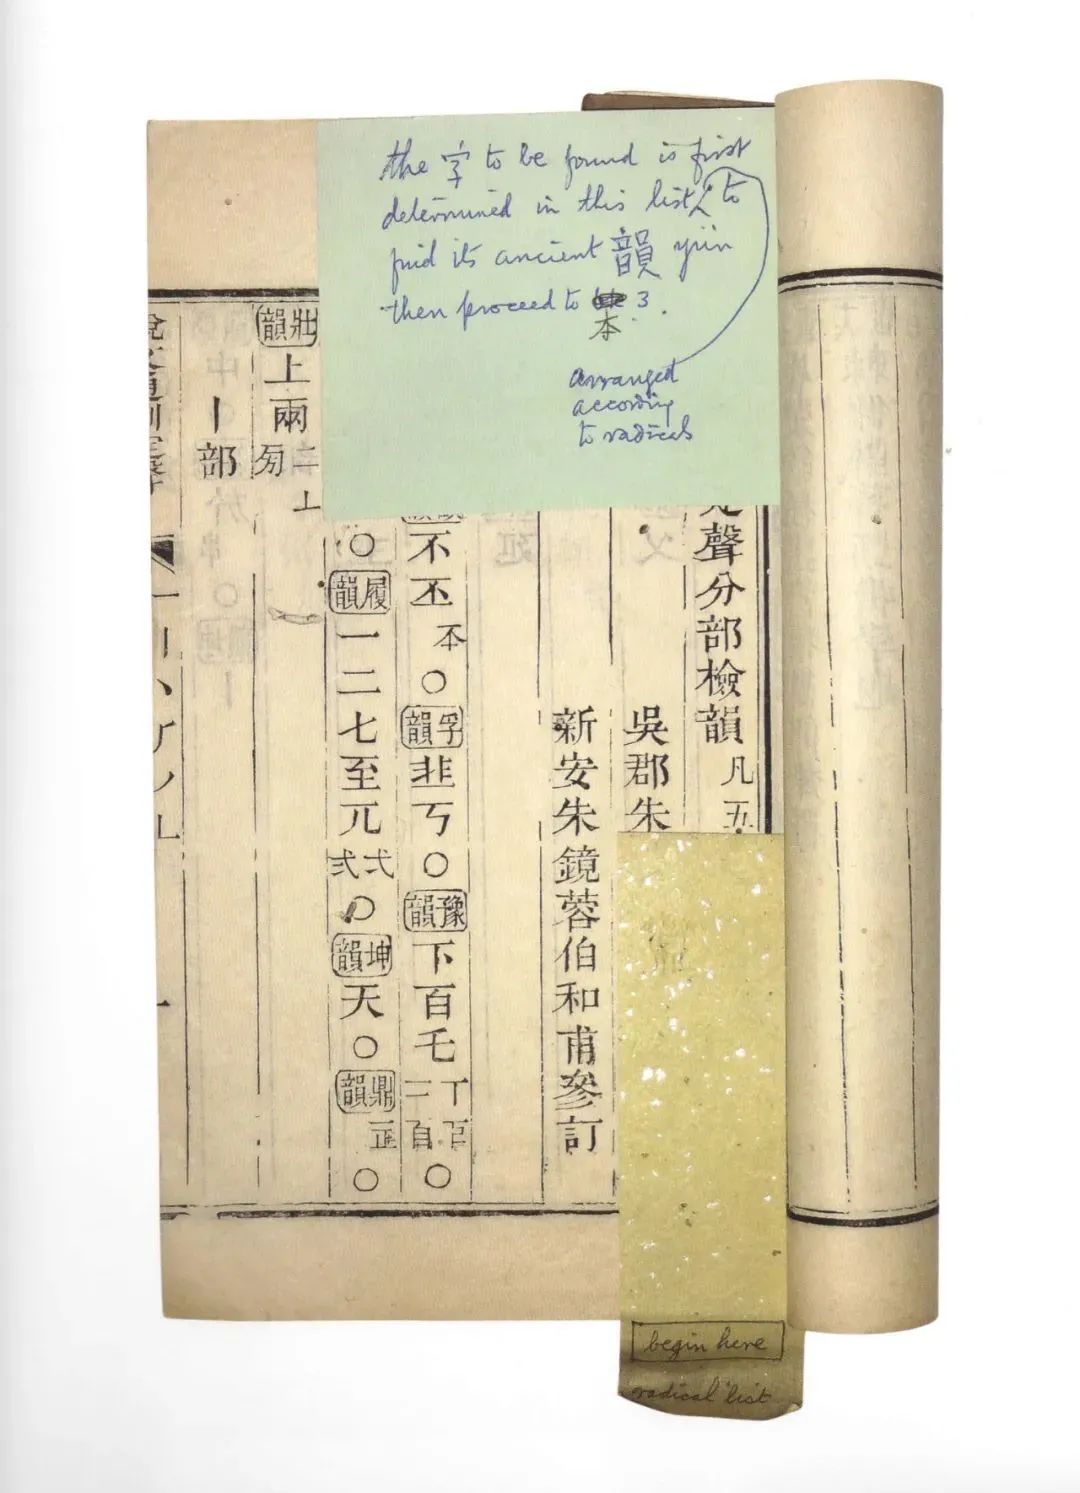 the 字 to be found is first
determined in this list, to
find its ancient 韻 yün
then proceed to 本 3.
arranged
according
to radicals
聲分部檢韻 凡五
吳郡朱
新安朱鏡蓉伯和甫參訂
不丕
𠀚○孚韻韭丂○豫韻下百乇
丅二百○
○履韻一二七至兀
弌弍○坤韻天○鼎韻
𤴓○
壯韻上兩
二丄
丨部
begin here
radical list